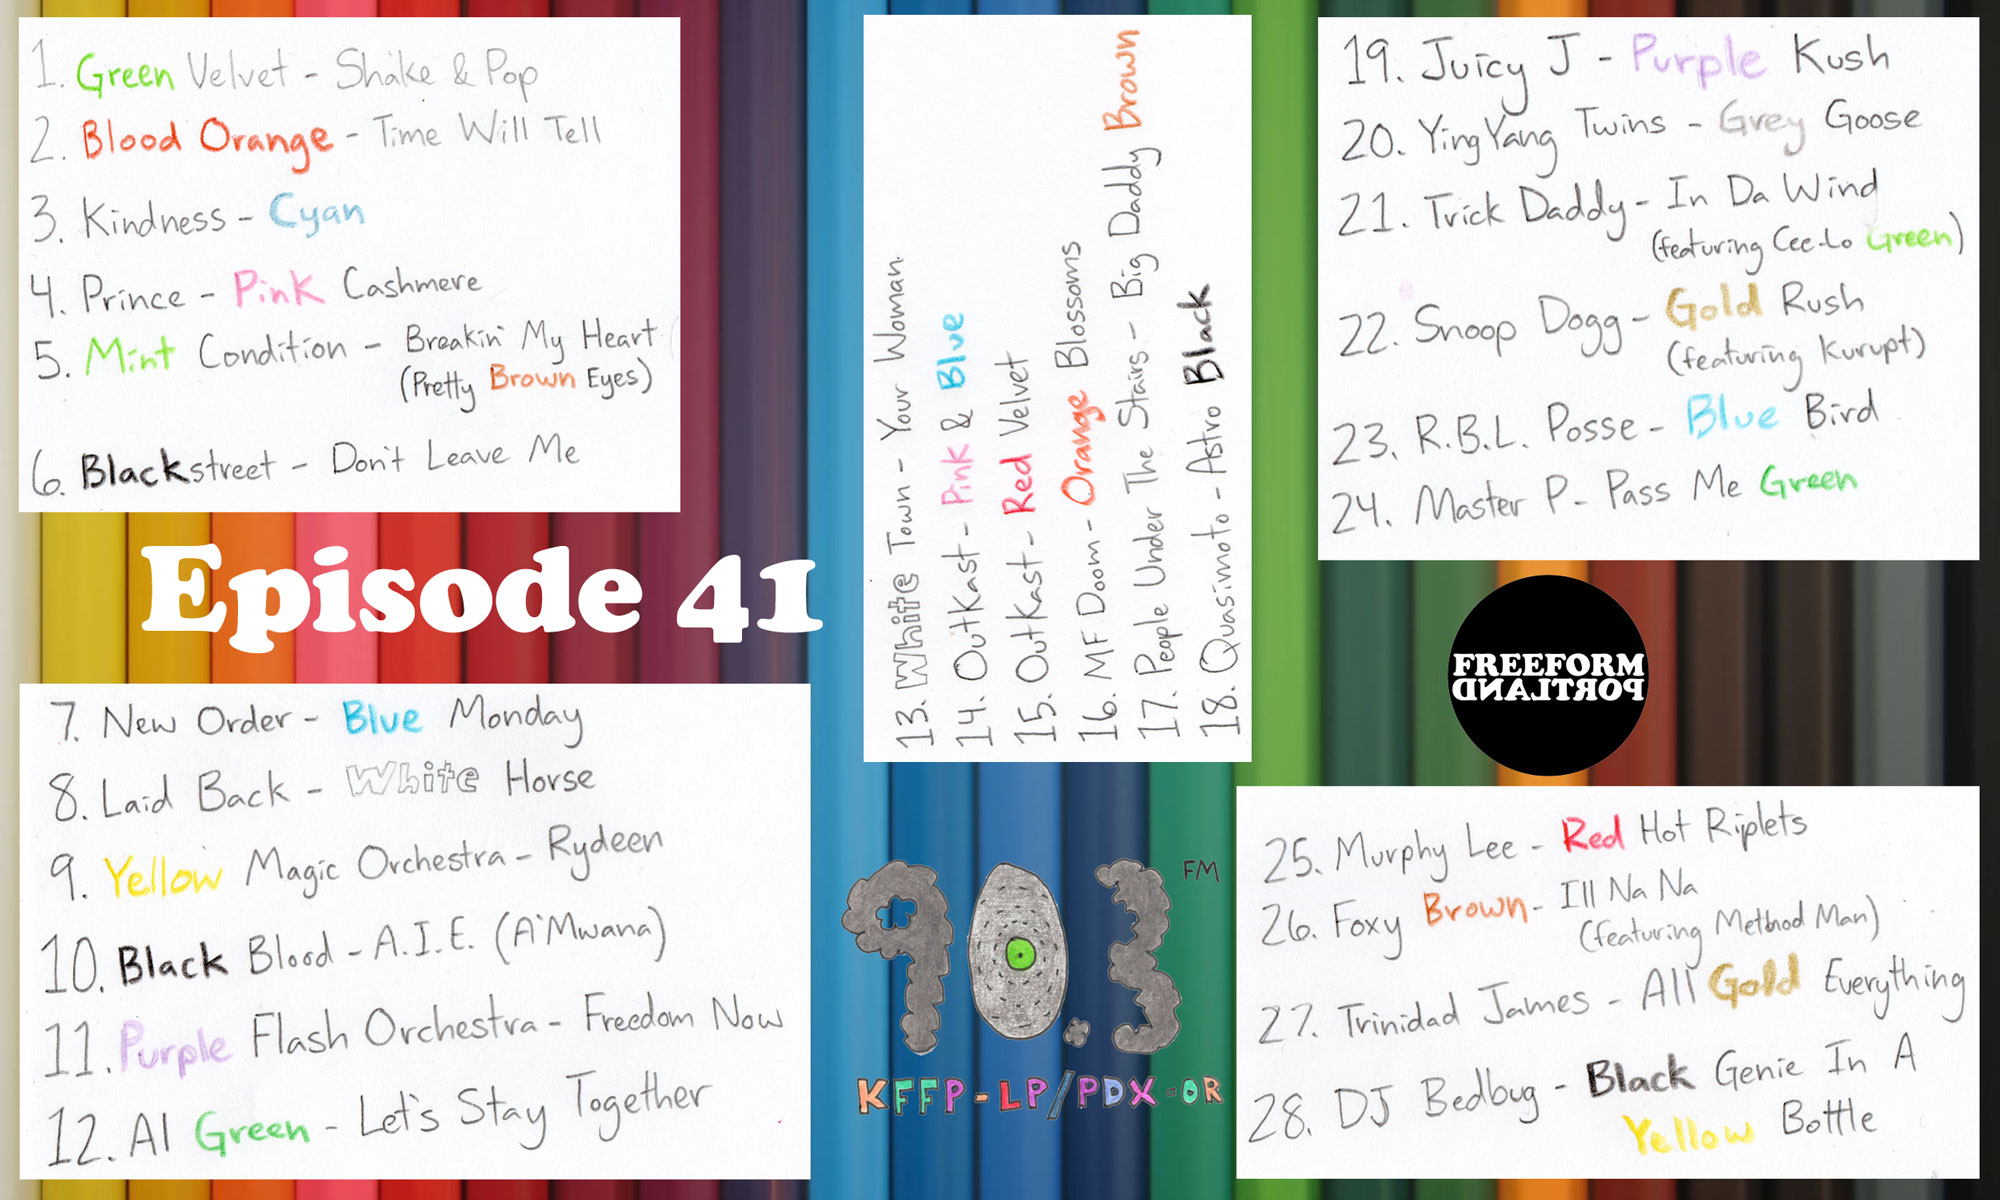 1. Green Velvet - Shake & Pop
2. Blood Orange - Time Will Tell
3. Kindness - Cyan
4. Prince - Pink Cashmere
5. Mint Condition - Breakin' My Heart
(Pretty Brown Eyes)
6. Blackstreet - Don't Leave Me
Episode 41
7. New Order - Blue Monday
8. Laid Back - White Horse
9. Yellow Magic Orchestra - Rydeen
10. Black Blood - A.I.E. (A'Mwana)
11. Purple Flash Orchestra - Freedom Now
12. Al Green - Let's Stay Together
13. White Town - Your Woman
14. OutKast - Pink & Blue
15. OutKast - Red Velvet
16. MF Doom - Orange Blossoms
17. People Under The Stairs - Big Daddy Brown
18. Quasimoto - Astro Black
90.3 FM
KFFP-LP/PDX-OR
19. Juicy J - Purple Kush
20. YingYang Twins - Grey Goose
21. Trick Daddy - In Da Wind
(featuring Cee-Lo Green)
22. Snoop Dogg - Gold Rush
(featuring Kurupt)
23. R.B.L. Posse - Blue Bird
24. Master P - Pass Me Green
FREEFORM
PORTLAND
25. Murphy Lee - Red Hot Riplets
26. Foxy Brown - Ill Na Na
(featuring Method Man)
27. Trinidad James - All Gold Everything
28. DJ Bedbug - Black Genie In A
Yellow Bottle